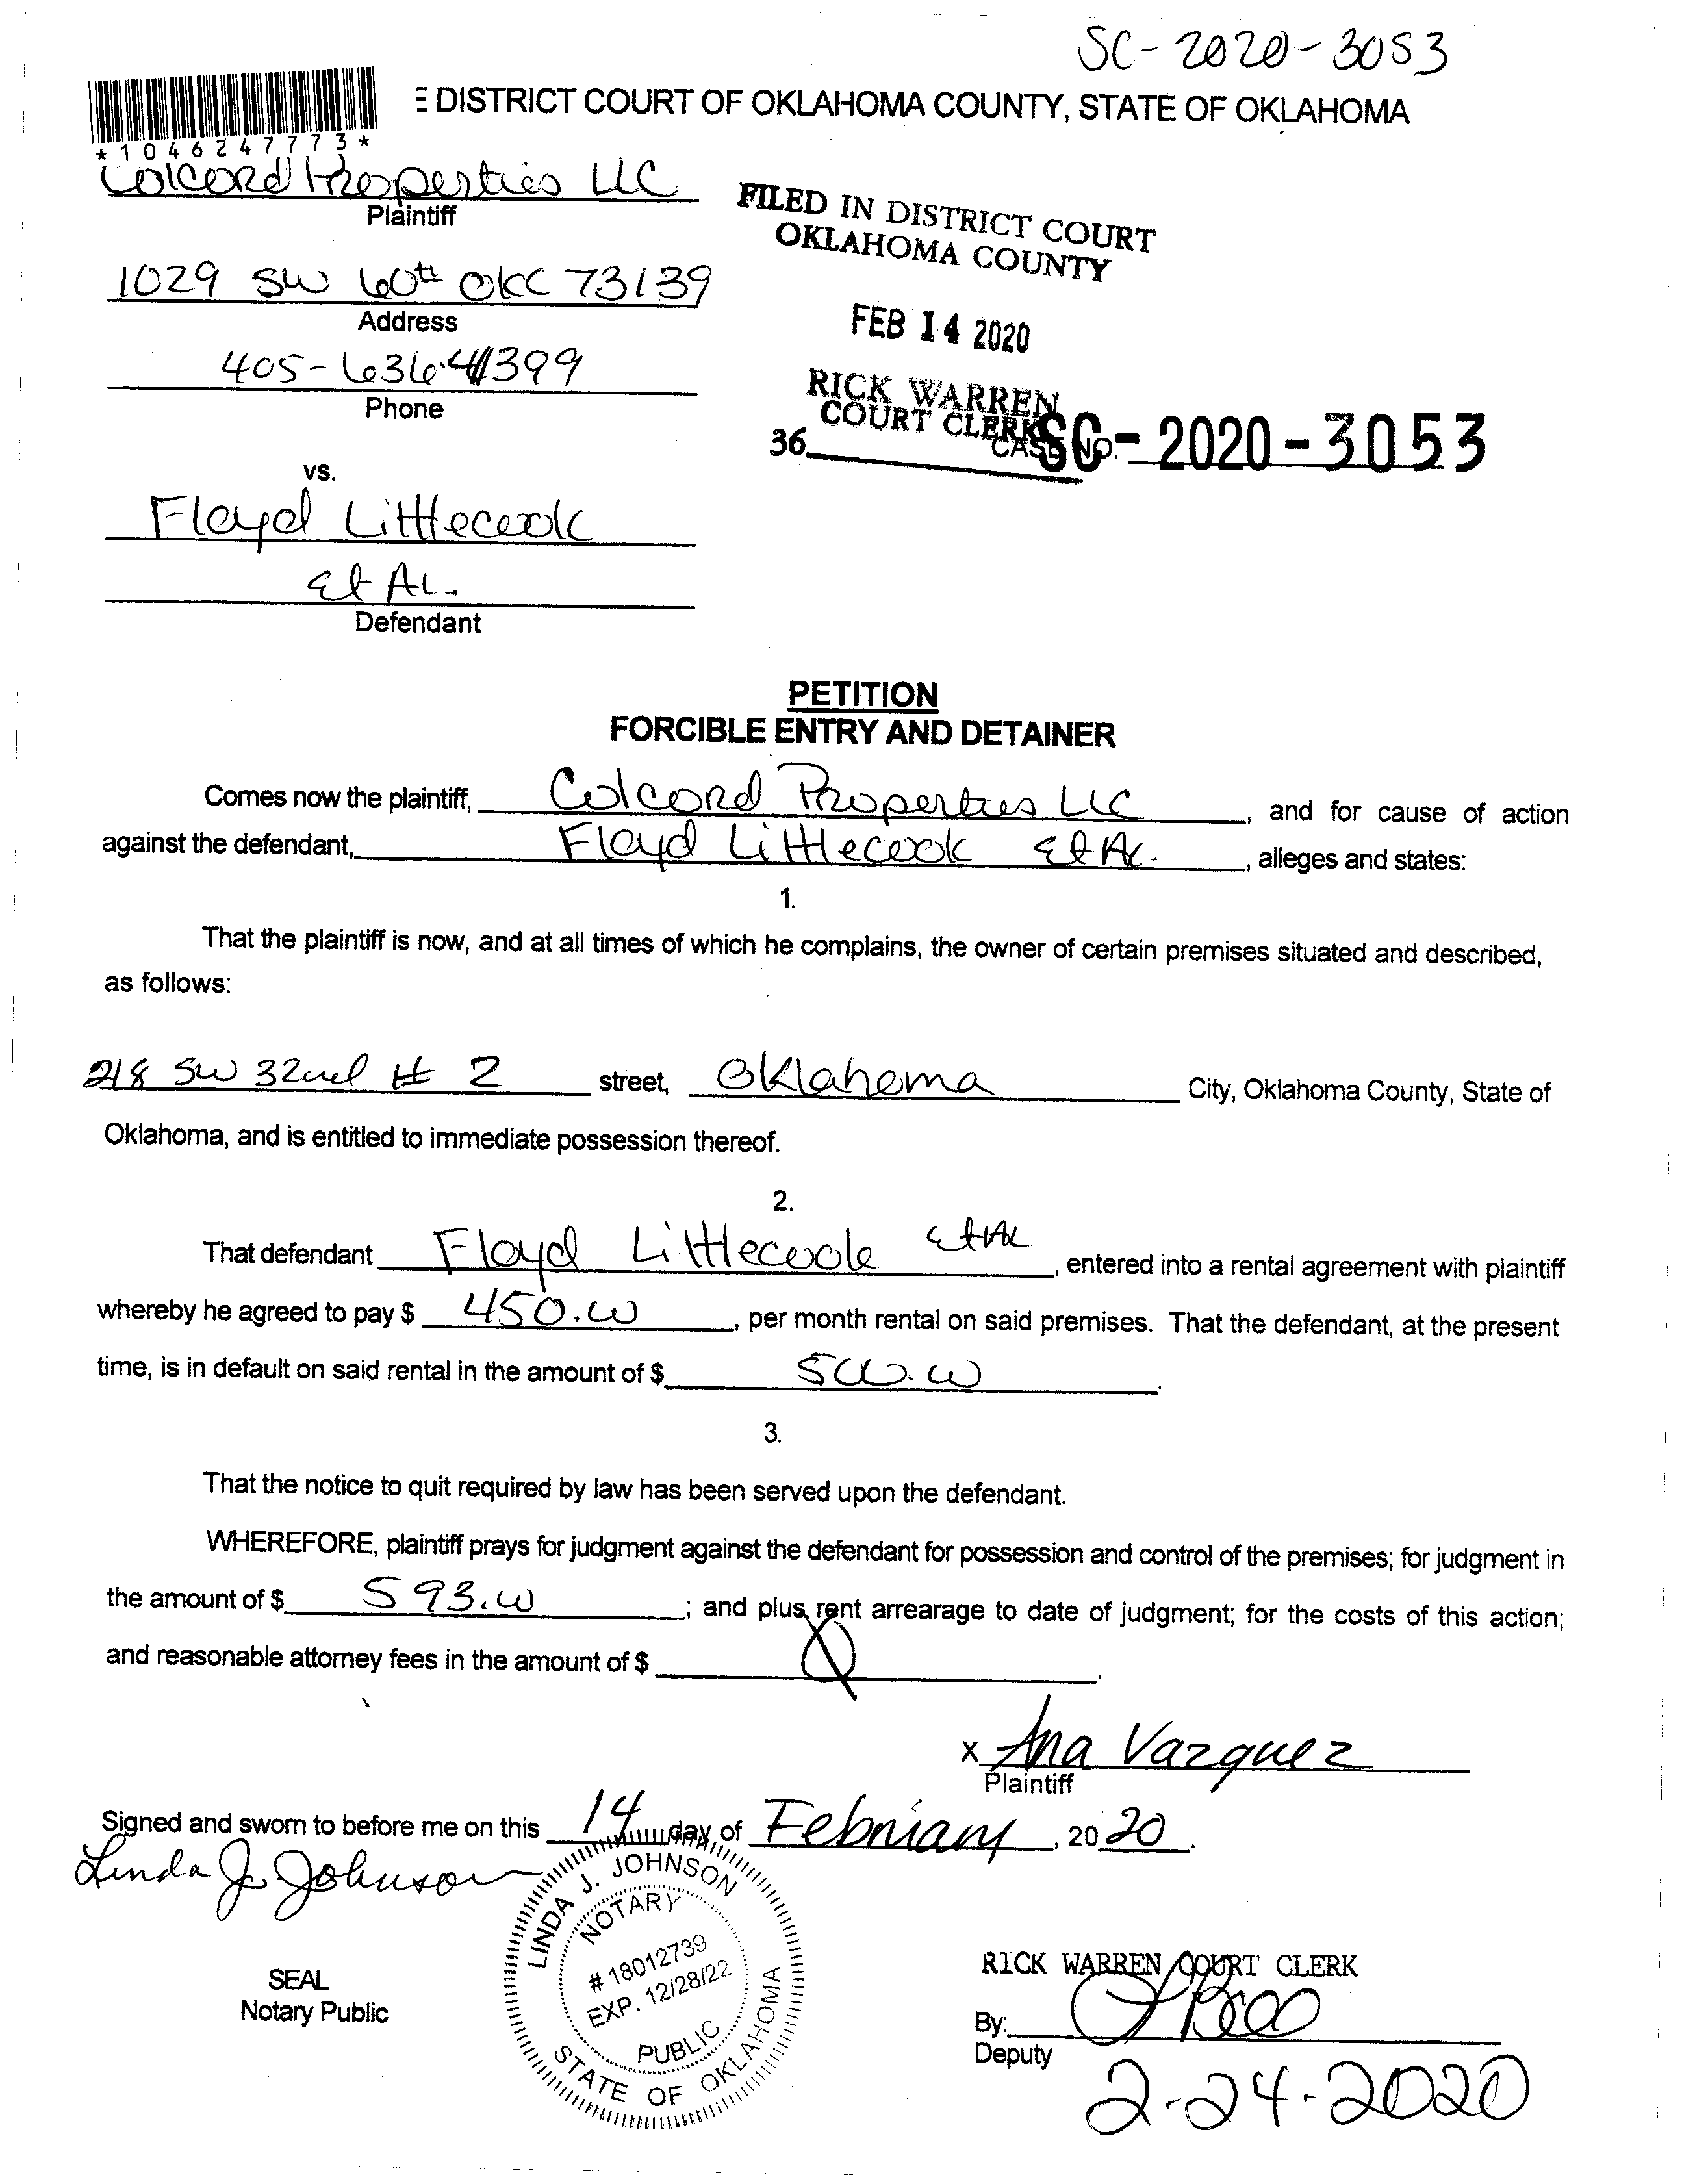 SC-2020-3053
E DISTRICT COURT OF OKLAHOMA COUNTY, STATE OF OKLAHOMA
*1046247773*
Colcord Properties LLC
Plaintiff
FILED IN DISTRICT COURT
OKLAHOMA COUNTY
1029 SW 60th OKC 73139
Address
FEB 14 2020
405-636-4399
Phone
RICK WARREN
COURT CLERK
36
CASE NO. SC-2020-3053
vs.
Floyd Littlecook
Et AL.
Defendant
PETITION
FORCIBLE ENTRY AND DETAINER
Comes now the plaintiff, Colcord Properties LLC, and for cause of action
against the defendant, Floyd Littlecook Et AL., alleges and states:
1.
That the plaintiff is now, and at all times of which he complains, the owner of certain premises situated and described,
as follows:
218 SW 32nd # 2 street, Oklahoma City, Oklahoma County, State of
Oklahoma, and is entitled to immediate possession thereof.
2.
That defendant Floyd Littlecook Et AL, entered into a rental agreement with plaintiff
whereby he agreed to pay $ 450.00, per month rental on said premises. That the defendant, at the present
time, is in default on said rental in the amount of $ 500.00.
3.
That the notice to quit required by law has been served upon the defendant.
WHEREFORE, plaintiff prays for judgment against the defendant for possession and control of the premises; for judgment in
the amount of $ 593.00; and plus rent arrearage to date of judgment; for the costs of this action;
and reasonable attorney fees in the amount of $ 0.
x Ana Vazquez
Plaintiff
Signed and sworn to before me on this 14 day of February, 2020.
Linda J. Johnson
LINDA J. JOHNSON
NOTARY
# 18012739
EXP. 12/28/22
PUBLIC
STATE OF OKLAHOMA
SEAL
Notary Public
RICK WARREN COURT CLERK
By:
Deputy
2-24-2020